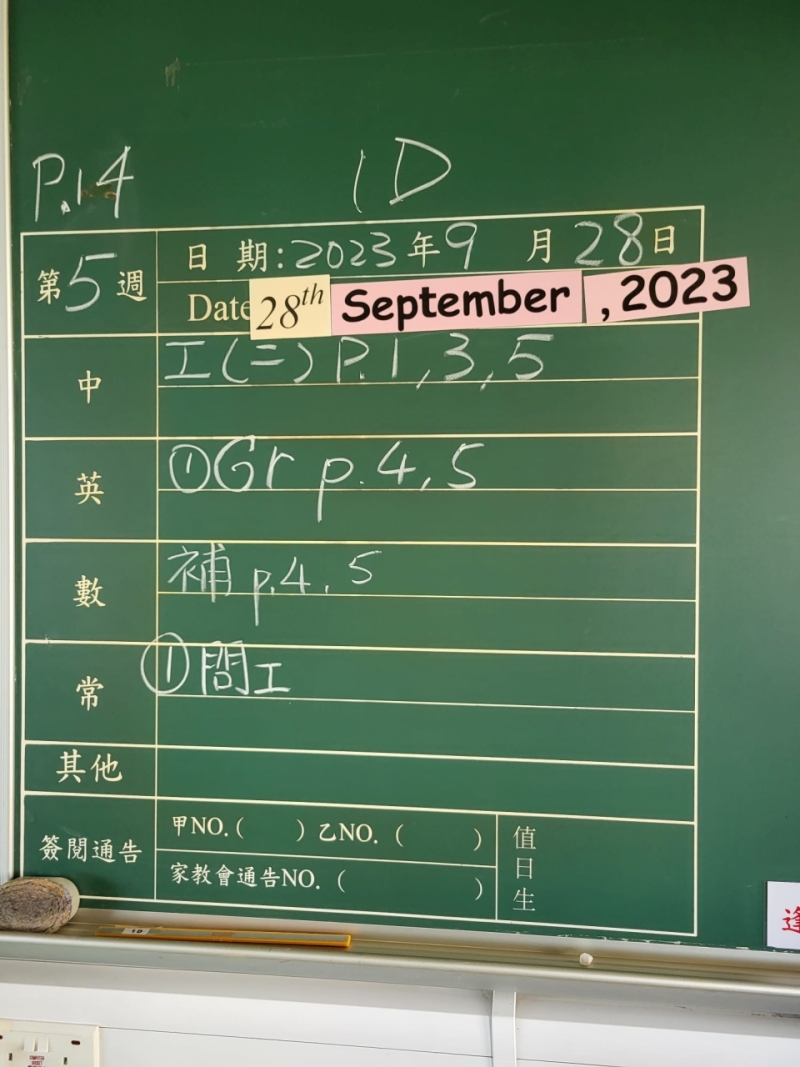 P.14 1D
第5週
日期:2023年9月28日
Date 28th September , 2023
中
工(二) P.1,3,5
英
①Gr p.4,5
數
補 p.4,5
常
①問工
其他
簽閱通告
甲NO.( ) 乙NO.( )
家教會通告NO.( )
值日生
1D
逢